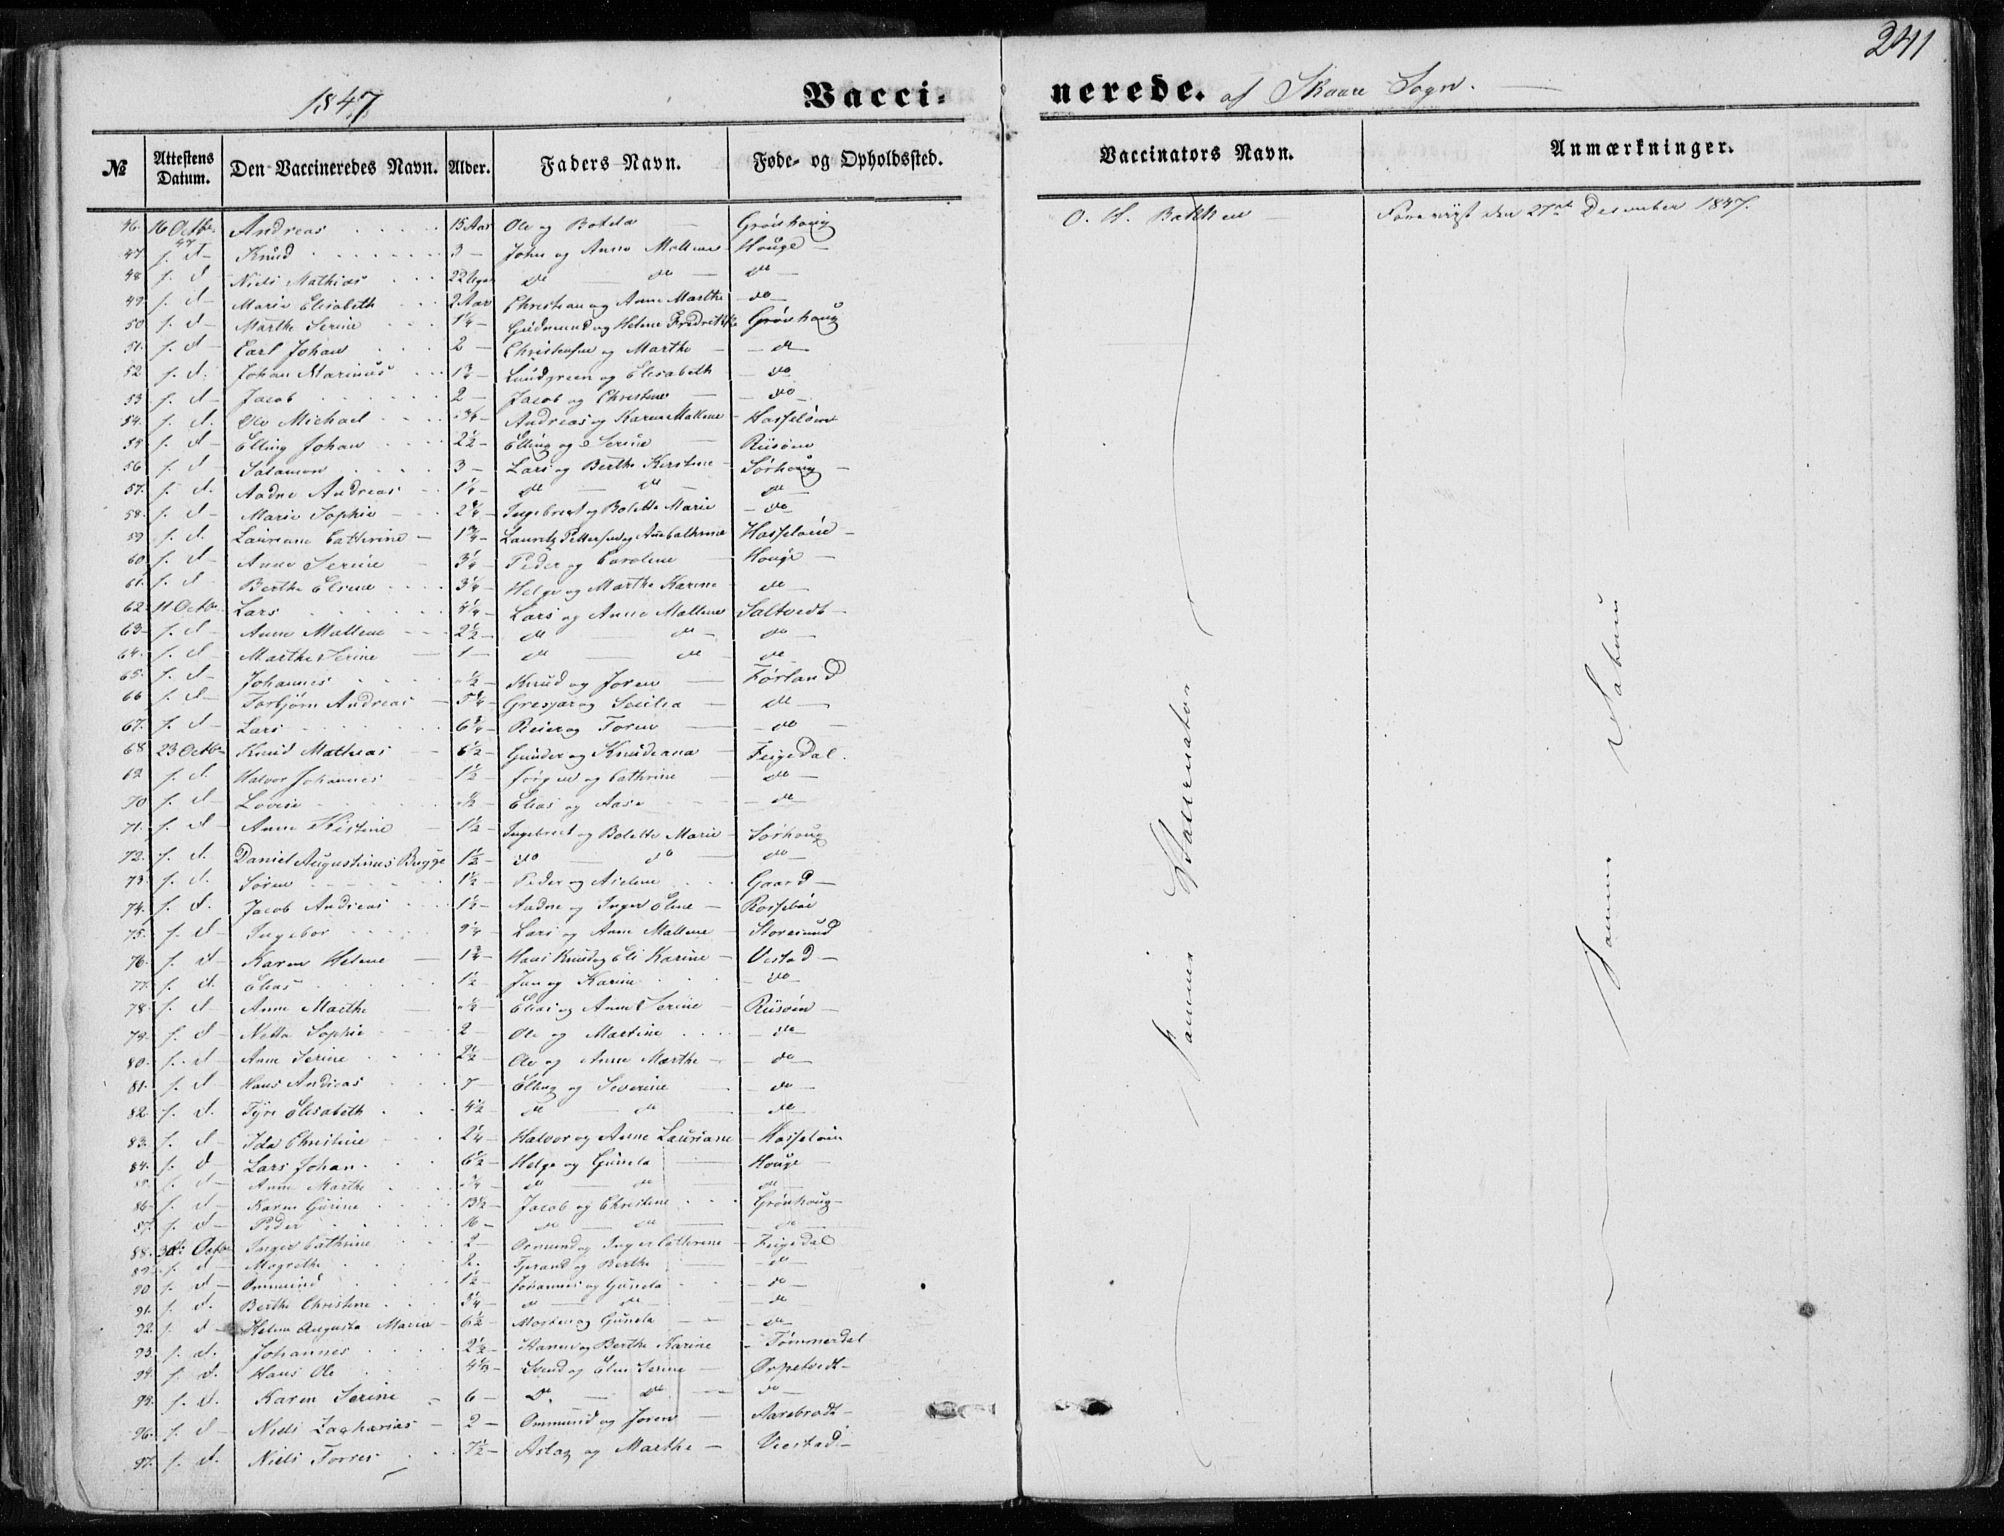 241
1847
Vacci-nerede. af Skaare Sogn.
№ Attestens Datum. Den Vaccineredes Navn. Alder. Faders Navn. Føde- og Opholdssted. Vaccinators Navn. Anmærkninger.
46. 16 Octbr 47 Andreas 15 Aar Ole og Botela Grönhoug O. H. Bakken Forevist den 27de December 1847.
47 f. d Knud 3 John og Anne Mallene Houge
48 f. d Niels Mathias 22 Uger do do do
49. f. d Marie Elisabeth 2 Aar Christian og Anne Marthe do
50 f. d Marthe Serine 1¼ Gudmund og Helene Fredrikke Grönhoug
51. f. d Carl Johan 2 Christensen og Marthe do
52 f. d. Johan Marinus 1¾ Lundgreen og Elisabeth do
53 f. d Jacob 2 Jacob og Christine do
54. f. d. Ole Michael Andreas og Karen Mallene Hasseløen
55 f. d Elling Johan 2½ Elling og Serine Risøen
56 f. d Salamon 3 Lars og Berthe Kirstine Sørhoug
57. f. d. Aadne Andreas 1¼ do do do
58. f. d Marie Sophie 2¾ Ingebret og Bolette Marie do
59 f. d. Lauriane Catherine 1¾ Lauritz Pettersen og Ane Cathrine Hasseløen
60. f. d Anne Serine 3¼ Peder og Caroline Houge
61. f. d Berthe Elene 3¼ Helge og Marthe Karine do
62. 11 Octbr Lars 4¼ Lars og Anne Mallene Saltvedt
63 f. d Anne Mallene 2½ do do do
64. f. d Marthe Serine 1 do do do
65. f. d Johannes ½ Knud og Joren Førland
66 f. d Torbjørn Andreas 5¼ Gresjar og Scicilia do
67. f. d Lars 6¾ Reier og Toren do
68 23 Octbr Knud Mathias 6½ Gunder og Knudeana Feigedal.
69 f. d. Halvor Johannes 1½ Jörgen og Cathrine do
70 f. d Lovise ½ Elias og Aase do
71. f. d Anne Kistine 1½ Ingebret og Bolette Marie Sørhoug
72. f. d. Daniel Augustinus Bugge 1½ do do do
73. f. d. Søren 1½ Peder og Aselene Gaard
74. f. d. Jacob Andreas 1½ Aadne og Inger Elene Rossebøe
75. f. d Ingebor Lars og Anne Mallene Storesund
76. f. d Karen Helene 1¾ Hans Knud og Eli Karine Vestad
77. f. d. Elias 1½ Jan og Karine do
78 f. d. Anne Marthe ½ Elias og Anne Serine Risøen
79. f. d Netta Sophie 2 Ole og Martine do
80. f. d Ane Serine 2½ Ole og Anne Marthe do
81. f. d Hans Andreas 7 Elling og Severine do
82. f. d. Tyre Elisabeth 4½ do do do
83. f. d Ida Christine 2¼ Halvor og Anne Lauriane Hasseløen
84. f. d Lars Johan 6½ Helge og Gunela Houge
85. f. d Anne Marthe ¾ do do do
86 f. d Karen Gurine 13½ Jacob og Christene Grönhoug
87. f. d Peder 16 do do do
88. 30te Octbr Inger Cathrine 2 Ommund og Inger Cathrine Feigedal
89 f. d Magrethe 2. Tjerand og Berthe do
90 f. d Ommund 1½ Johannes og Gunela do
91. f. d. Berthe Christene 3¼ do do do
92. f. d Helene Augusta Maria 6½ Morten og Gunela do
93 f. d. Johannes 2½ Hans og Berthe Karine Tømmerdal
94. f. d. Hans Ole 4½ Svend og Elen Serine Ørpetvedt
95. f. d. Karen Serine 6 Do. do do
96. f. d Niels Zacharias 2 Ommund og Joren Aarebrodt
97. f. d. Niels Torres 7½ Aslag og Marthe Veestad
Samme Vaccinator
Samme Datum